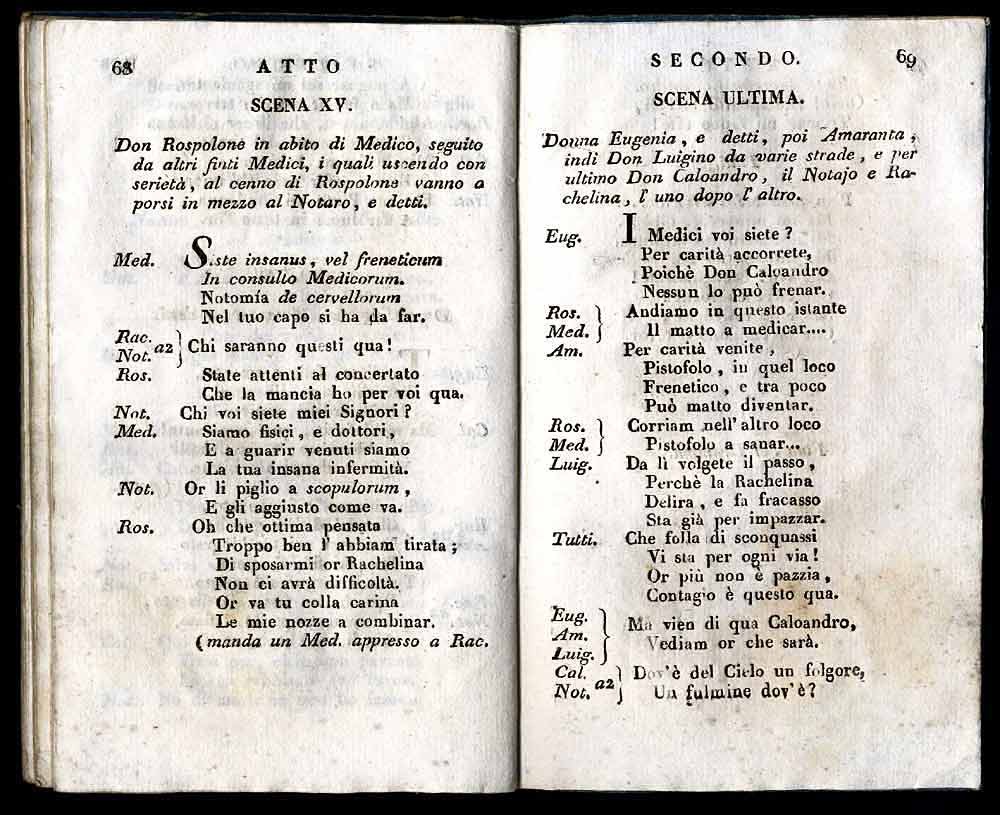 68 ATTO
SCENA XV.
Don Rospolone in abito di Medico, seguito
da altri finti Medici, i quali uscendo con
serietà, al cenno di Rospolone vanno a
porsi in mezzo al Notaro, e detti.
Med. Siste insanus, vel freneticum
In consulto Medicorum.
Notomía de cervellorum
Nel tuo capo si ha da far.
Rac.
Not. a2 } Chi saranno questi qua!
Ros. State attenti al concertato
Che la mancia ho per voi qua.
Not. Chi voi siete miei Signori?
Med. Siamo fisici, e dottori,
E a guarir venuti siamo
La tua insana infermità.
Not. Or li piglio a scopulorum,
E gli aggiusto come va.
Ros. Oh che ottima pensata
Troppo ben l' abbiam tirata;
Di sposarmi or Rachelina
Non ci avrà difficoltà.
Or va tu colla carina
Le mie nozze a combinar.
(manda un Med. appresso a Rac.
SECONDO. 69
SCENA ULTIMA.
Donna Eugenia, e detti, poi Amaranta,
indi Don Luigino da varie strade, e per
ultimo Don Caloandro, il Notajo e Ra-
chelina, l' uno dopo l' altro.
Eug. I Medici voi siete?
Per carità accorrete,
Poichè Don Caloandro
Nessun lo può frenar.
Ros. } Andiamo in questo istante
Med. } Il matto a medicar....
Am. Per carità venite,
Pistofolo, in quel loco
Frenetico, e tra poco
Può matto diventar.
Ros. } Corriam nell' altro loco
Med. } Pistofolo a sanar...
Luig. Da lì volgete il passo,
Perchè la Rachelina
Delira, e fa fracasso
Sta già per impazzar.
Tutti. Che folla di sconquassi
Vi sta per ogni via!
Or più non è pazzia,
Contagio è questo qua.
Eug.
Am. } Ma vien di qua Caloandro,
Luig. } Vediam or che sarà.
Cal. } Dov'è del Cielo un folgore,
Not. a2 } Un fulmine dov'è?